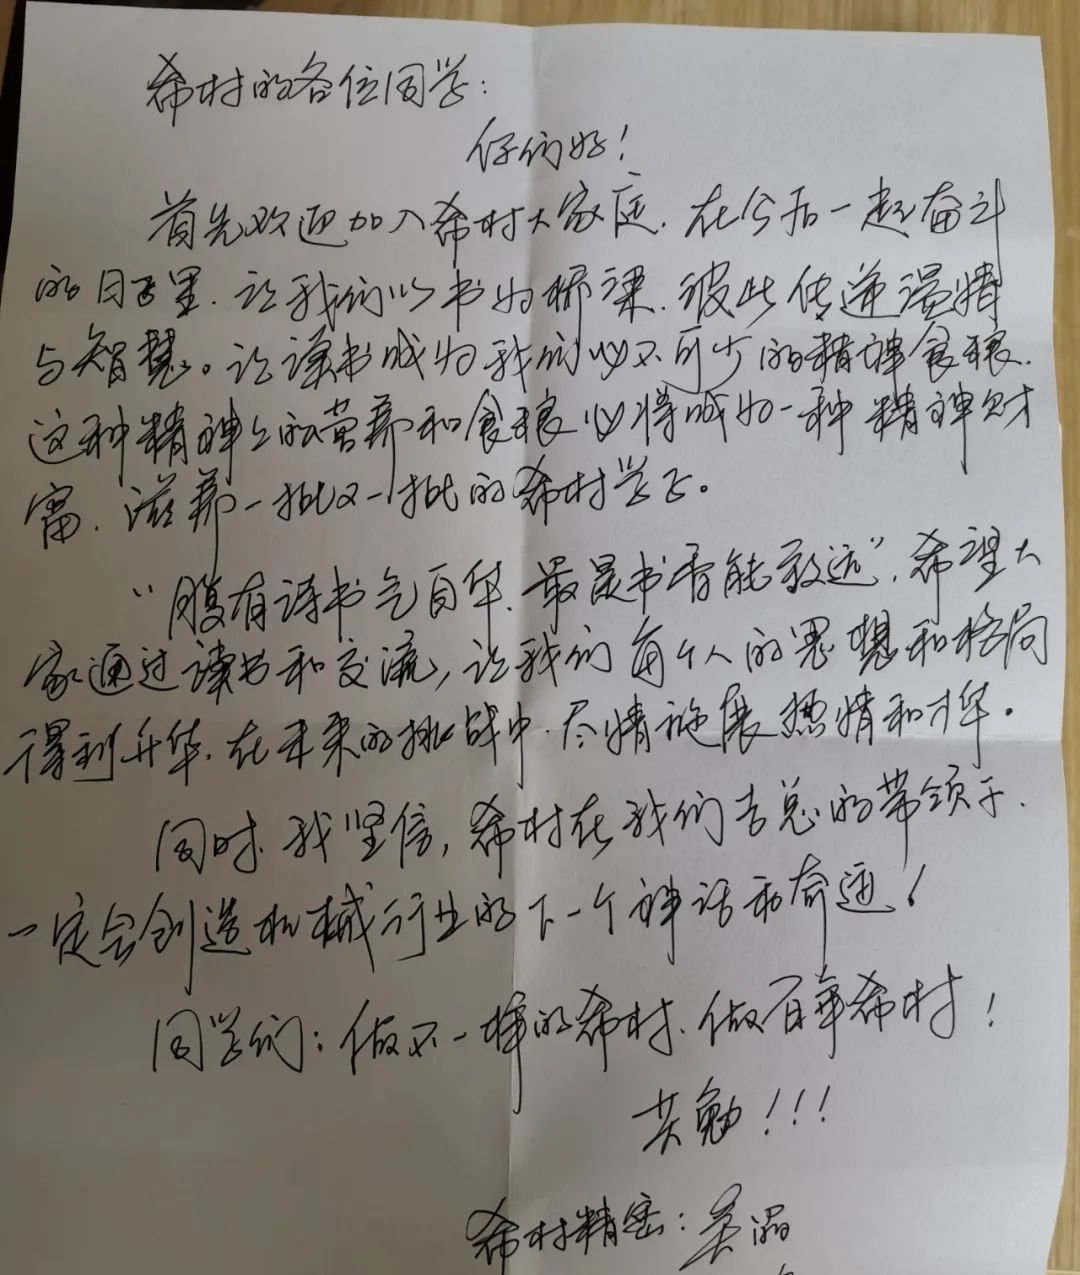 希村的各位同学:
你们好!
首先欢迎加入希村大家庭.在今后一起奋斗
的日子里.让我们以书为桥梁.彼此传递温情
与智慧。让读书成为我们必不可少的精神食粮.
这种精神上的营养和食粮必将成为一种精神财
富.滋养一批又一批的希村学子。
"腹有诗书气自华.最是书香能致远",希望大
家通过读书和交流,让我们每个人的思想和格局
得到升华.在未来的挑战中.尽情施展热情和才华。
同时.我坚信,希村在我们吉总的带领下.
一定会创造机械行业的下一个神话和奇迹!
同学们:做不一样的希村.做百年希村!
共勉!!!
希村精密:吴